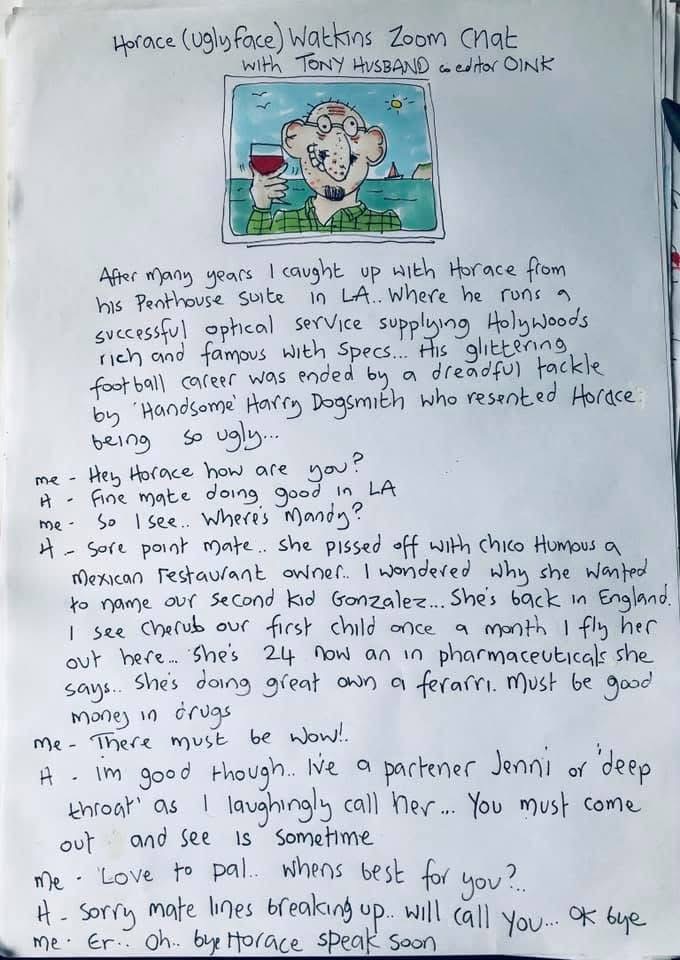 Horace (Uglyface) Watkins Zoom Chat
with TONY HUSBAND co editor OINK
After many years I caught up with Horace from
his Penthouse Suite in LA.. Where he runs a
successful optical service supplying Holywoods
rich and famous with specs... His glittering
football career was ended by a dreadful tackle
by 'Handsome' Harry Dogsmith who resented Horace
being so ugly...
me - Hey Horace how are you?
H - Fine mate doing good in LA
me - So I see.. Where's Mandy?
H - Sore point mate.. She pissed off with Chico Humous a
Mexican restaurant owner.. I wondered why she wanted
to name our second kid Gonzalez... She's back in England.
I see Cherub our first child once a month I fly her
out here... She's 24 now an in pharmaceuticals she
says.. She's doing great own a ferarri. Must be good
money in drugs
Me - There must be wow!.
H - im good though.. I've a partener Jenni or 'deep
throat' as I laughingly call her... You must come
out and see is sometime
Me - Love to pal.. whens best for you?..
H - Sorry mate lines breaking up.. will call you... OK bye
Me - Er.. Oh.. bye Horace speak soon